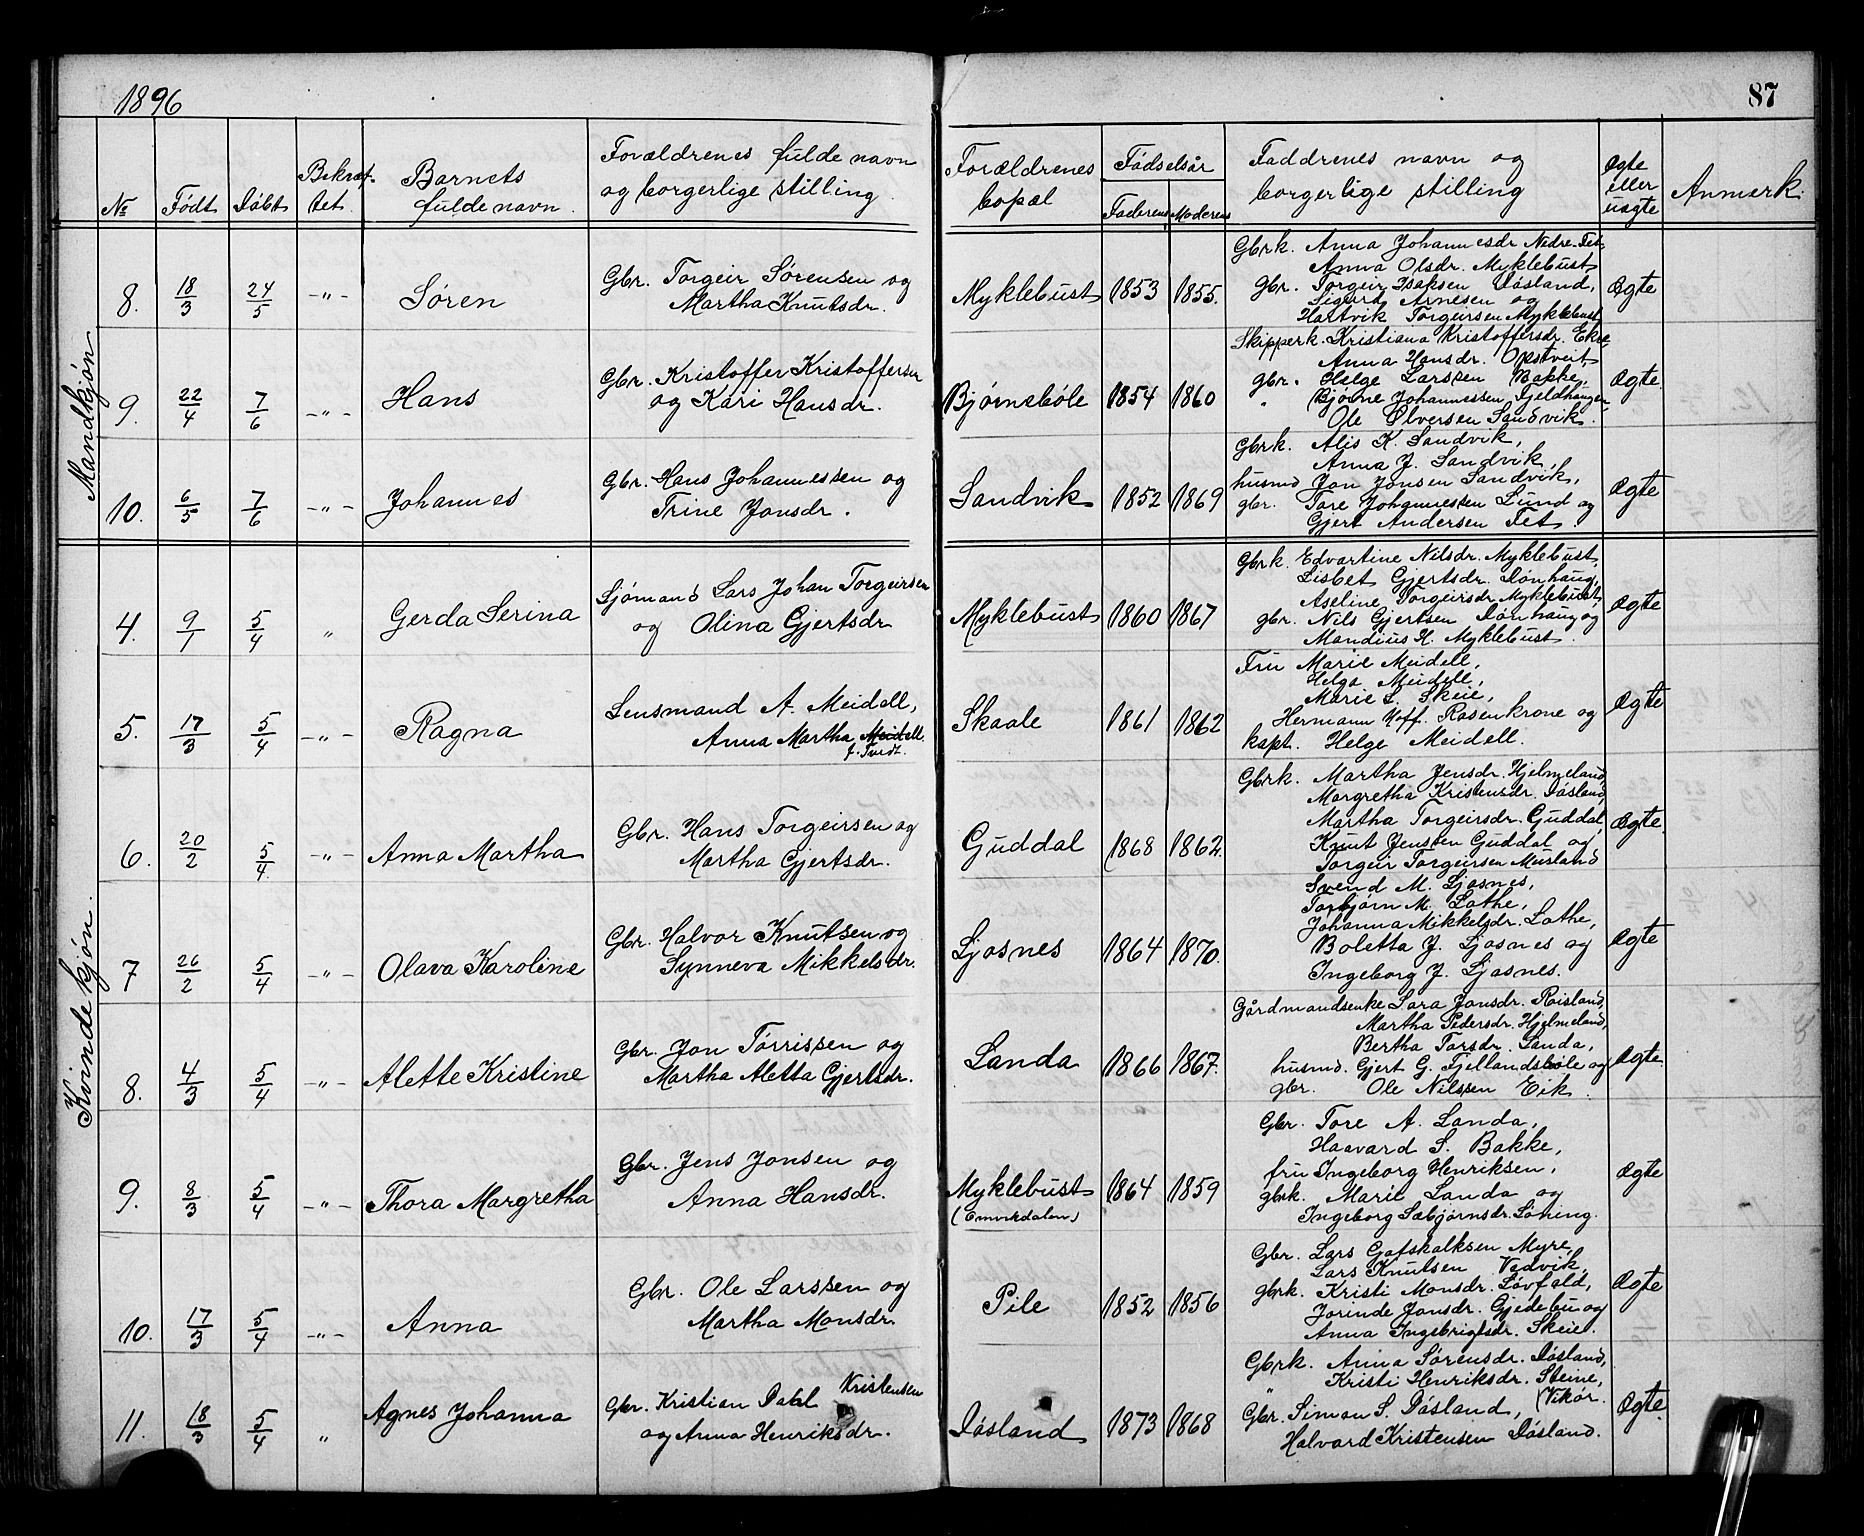 1896
87
№ Født Døbt Bekræf-tet Barnets fulde navn Forældrenes fulde navn og borgerlige stilling Forældrenes bopæl Fødselsår Faderens Moderens Faddrenes navn og borgerlige stilling Ægte eller uægte Anmærk.
Mandkjøn
8. 18/3 24/5 -"- Søren
Gbr. Torgeir Sørensen og
Martha Knutsdr.
Myklebust 1853 1855.
Gbrk. Anna Johannesdr Nedre-Fet,
Anna Olsdr. Myklebust
gbr. Torgeir Isaksen Døsland,
Sigurd Arnesen og
Hartvik Torgeirsen Myklebust
Ægte
9. 22/4 7/6 -"- Hans
Gbr. Kristoffer Kristoffersen
og Kari Hansdr.
Bjørnebøle 1854 1860
Skipperk. Kristiana Kristoffersdr. Ekre
Anna Hansdr. Opstveit,
gbr. Helge Larssen Bakke,
" Bjørne Johannessen Fjeldhaugen,
Ole Ølversen Sandvik.
Ægte
10. 6/5 7/6 -"- Johannes
Gbr. Hans Johannessen og
Trine Jonsdr.
Sandvik 1852 1869
Gbrk. Alis K. Sandvik,
Anna J. Sandvik,
husmd Jon Jonsen Sandvik,
gbr. Tore Johannessen Lund og
Gjert Andersen Fet.
Ægte
Kvindekjøn.
4. 9/1 5/4 " Gerda Serina
Sjømand Lars Johan Torgeirsen
og Olina Gjertsdr
Myklebust 1860 1867
Gbrk. Edvartine Nilsdr. Myklebust,
Lisbet Gjertsdr. Dønhaug,
Aseline Torgeirsdr Myklebust,
gbr. Nils Gjertsen Dønhaug og
Mandius H. Myklebust.
Ægte
5. 17/3 5/4 -"- Ragna
Lensmand A. Meidell,
Anna Martha Meidell.
f. Tvedt.
Skaale 1861 1862
Fru Marie Meidell,
Helga Meidell,
Marie L. Skeie,
Hermann Hoff. Rosenkrone og
kapt. Helge Meidell.
Ægte
6. 20/2 5/4. -"- Anna Martha
Gbr. Hans Torgeirsen og
Martha Gjertsdr.
Guddal 1868 1862.
Gbrk. Martha Jensdr. Hjelmeland,
Margretha Kristensdr. Døsland,
Martha Torgeirsdr. Guddal,
Knut Jenssen Guddal og
Torgeir Torgeirsen Meusland
Ægte.
7 26/2 5/4 -"- Olava Karoline
Gbr. Halvor Knutsen og
Synneva Mikkelsdr.
Ljosnes 1864 1870.
Svend M. Ljosnes,
Torbjørn M. Lothe,
Johanna Mikkelsdr. Lothe,
Boletta J. Ljosnes og
Ingeborg J. Ljosnes.
Ægte
8. 4/3 5/4 -"- Alette Kristine
Gbr. Jon Tørrissen og
Martha Aletta Gjertsdr.
Landa 1866 1867.
Gårdmandsenke Sara Jonsdr. Røisland,
Martha Pedersdr. Hjelmeland,
Bertha Torsdr. Landa,
husmd. Gjert G. Fjellandsbøle og
gbr. Ole Nilssen Eik.
Ægte.
9. 8/3 5/4 -"- Thora Margretha
Gbr. Jens Jonsen og
Anna Hansdr.
Myklebust 1864 1859
(Omvikdalen)
Gbr. Tore A. Landa,
Haavard S. Bakke,
fru Ingeborg Henriksen,
gbrk. Marie Landa og
Ingeborg Sæbjørnsdr. Löning.
Ægte
10. 17/3 5/4 -"- Anna
Gbr. Ole Larssen og
Martha Monsdr.
Pile 1852 1856
Gbr. Lars Gotskalksen Myre,
Lars Knutsen Vedvik,
gbrk. Kristi Monsdr. Løvfald,
Jorinde Jonsdr. Gjedebu og
Anna Ingebrigtsdr. Skeie.
Ægte
11. 18/3 5/4 " Agnes Johanna
Gbr. Kristian Dahl Kristensen
og Anna Henriksdr.
Døsland 1873 1868
Gbrk. Anna Sørensdr. Døsland,
" Kristi Henriksdr. Steine,
(Vikør.
Gbr. Simon S. Døsland,
Halvard Kristensen Døsland.
Ægte.